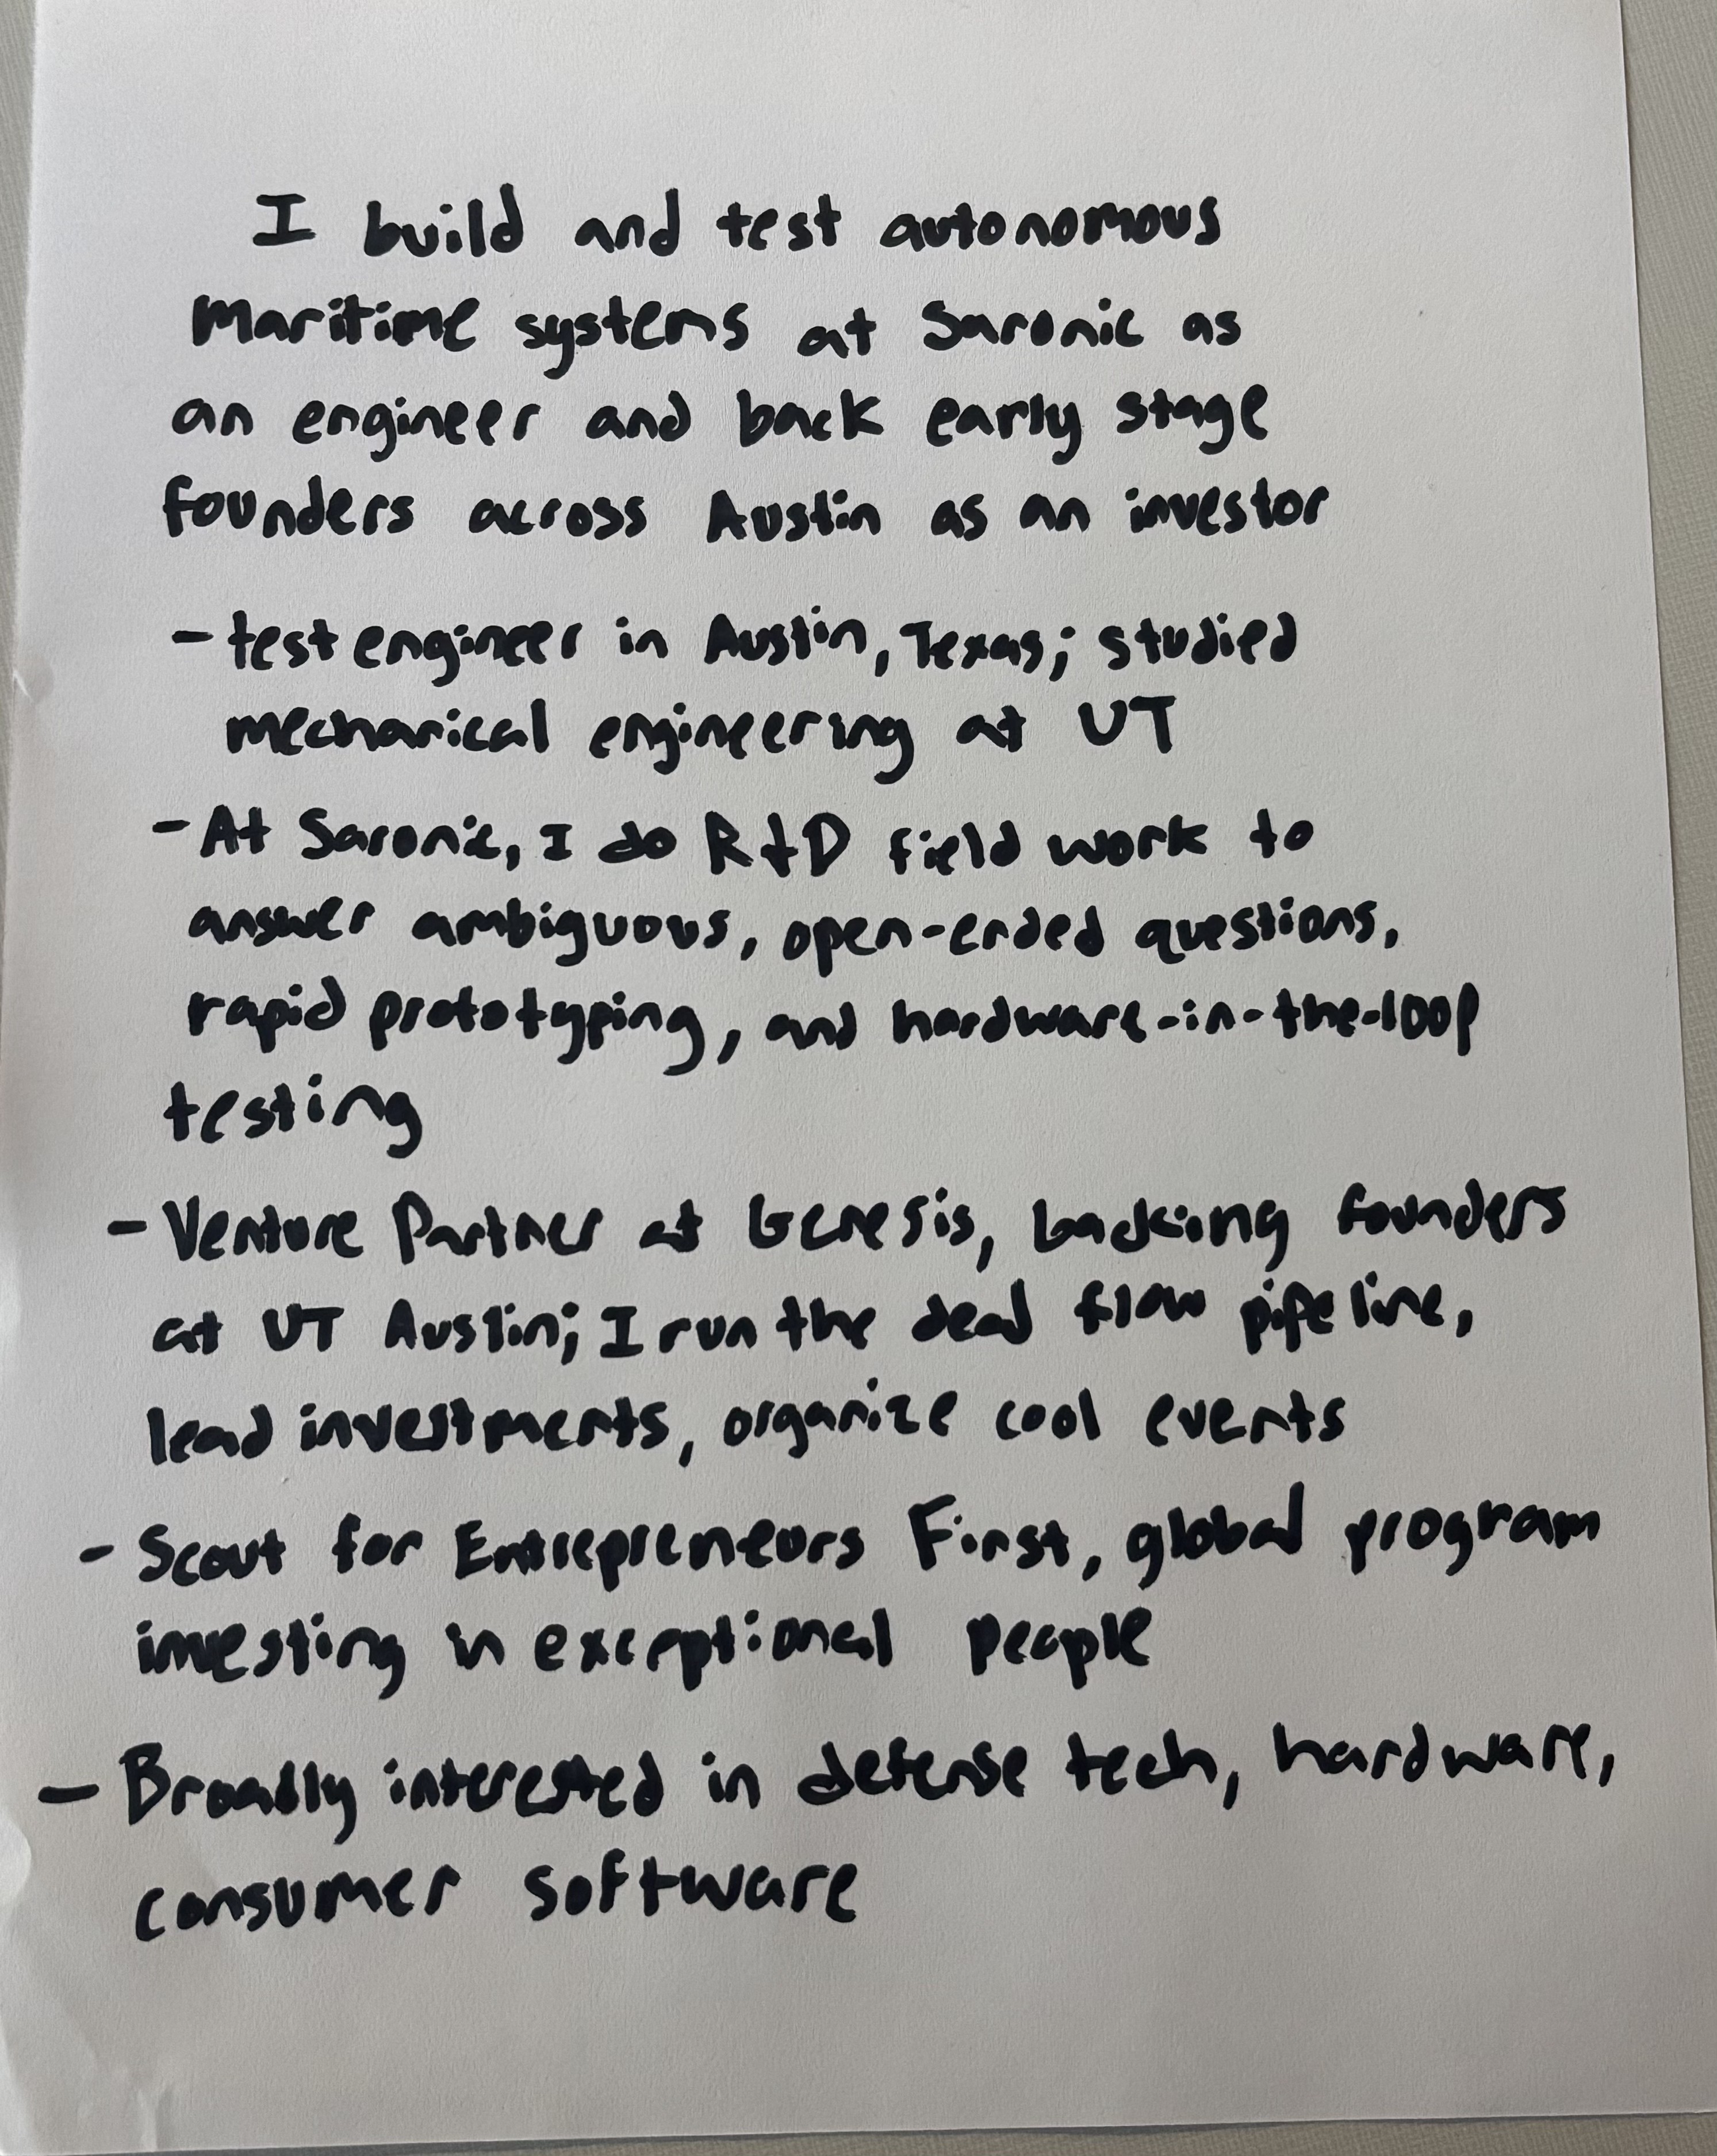 I build and test autonomous
maritime systems at Saronic as
an engineer and back early stage
founders across Austin as an investor
- test engineer in Austin, Texas; studied
mechanical engineering at UT
- At Saronic, I do R&D field work to
answer ambiguous, open-ended questions,
rapid prototyping, and hardware-in-the-loop
testing
- Venture Partner at Genesis, backing founders
at UT Austin; I run the deal flow pipeline,
lead investments, organize cool events
- Scout for Entrepreneurs First, global program
investing in exceptional people
- Broadly interested in defense tech, hardware,
consumer software